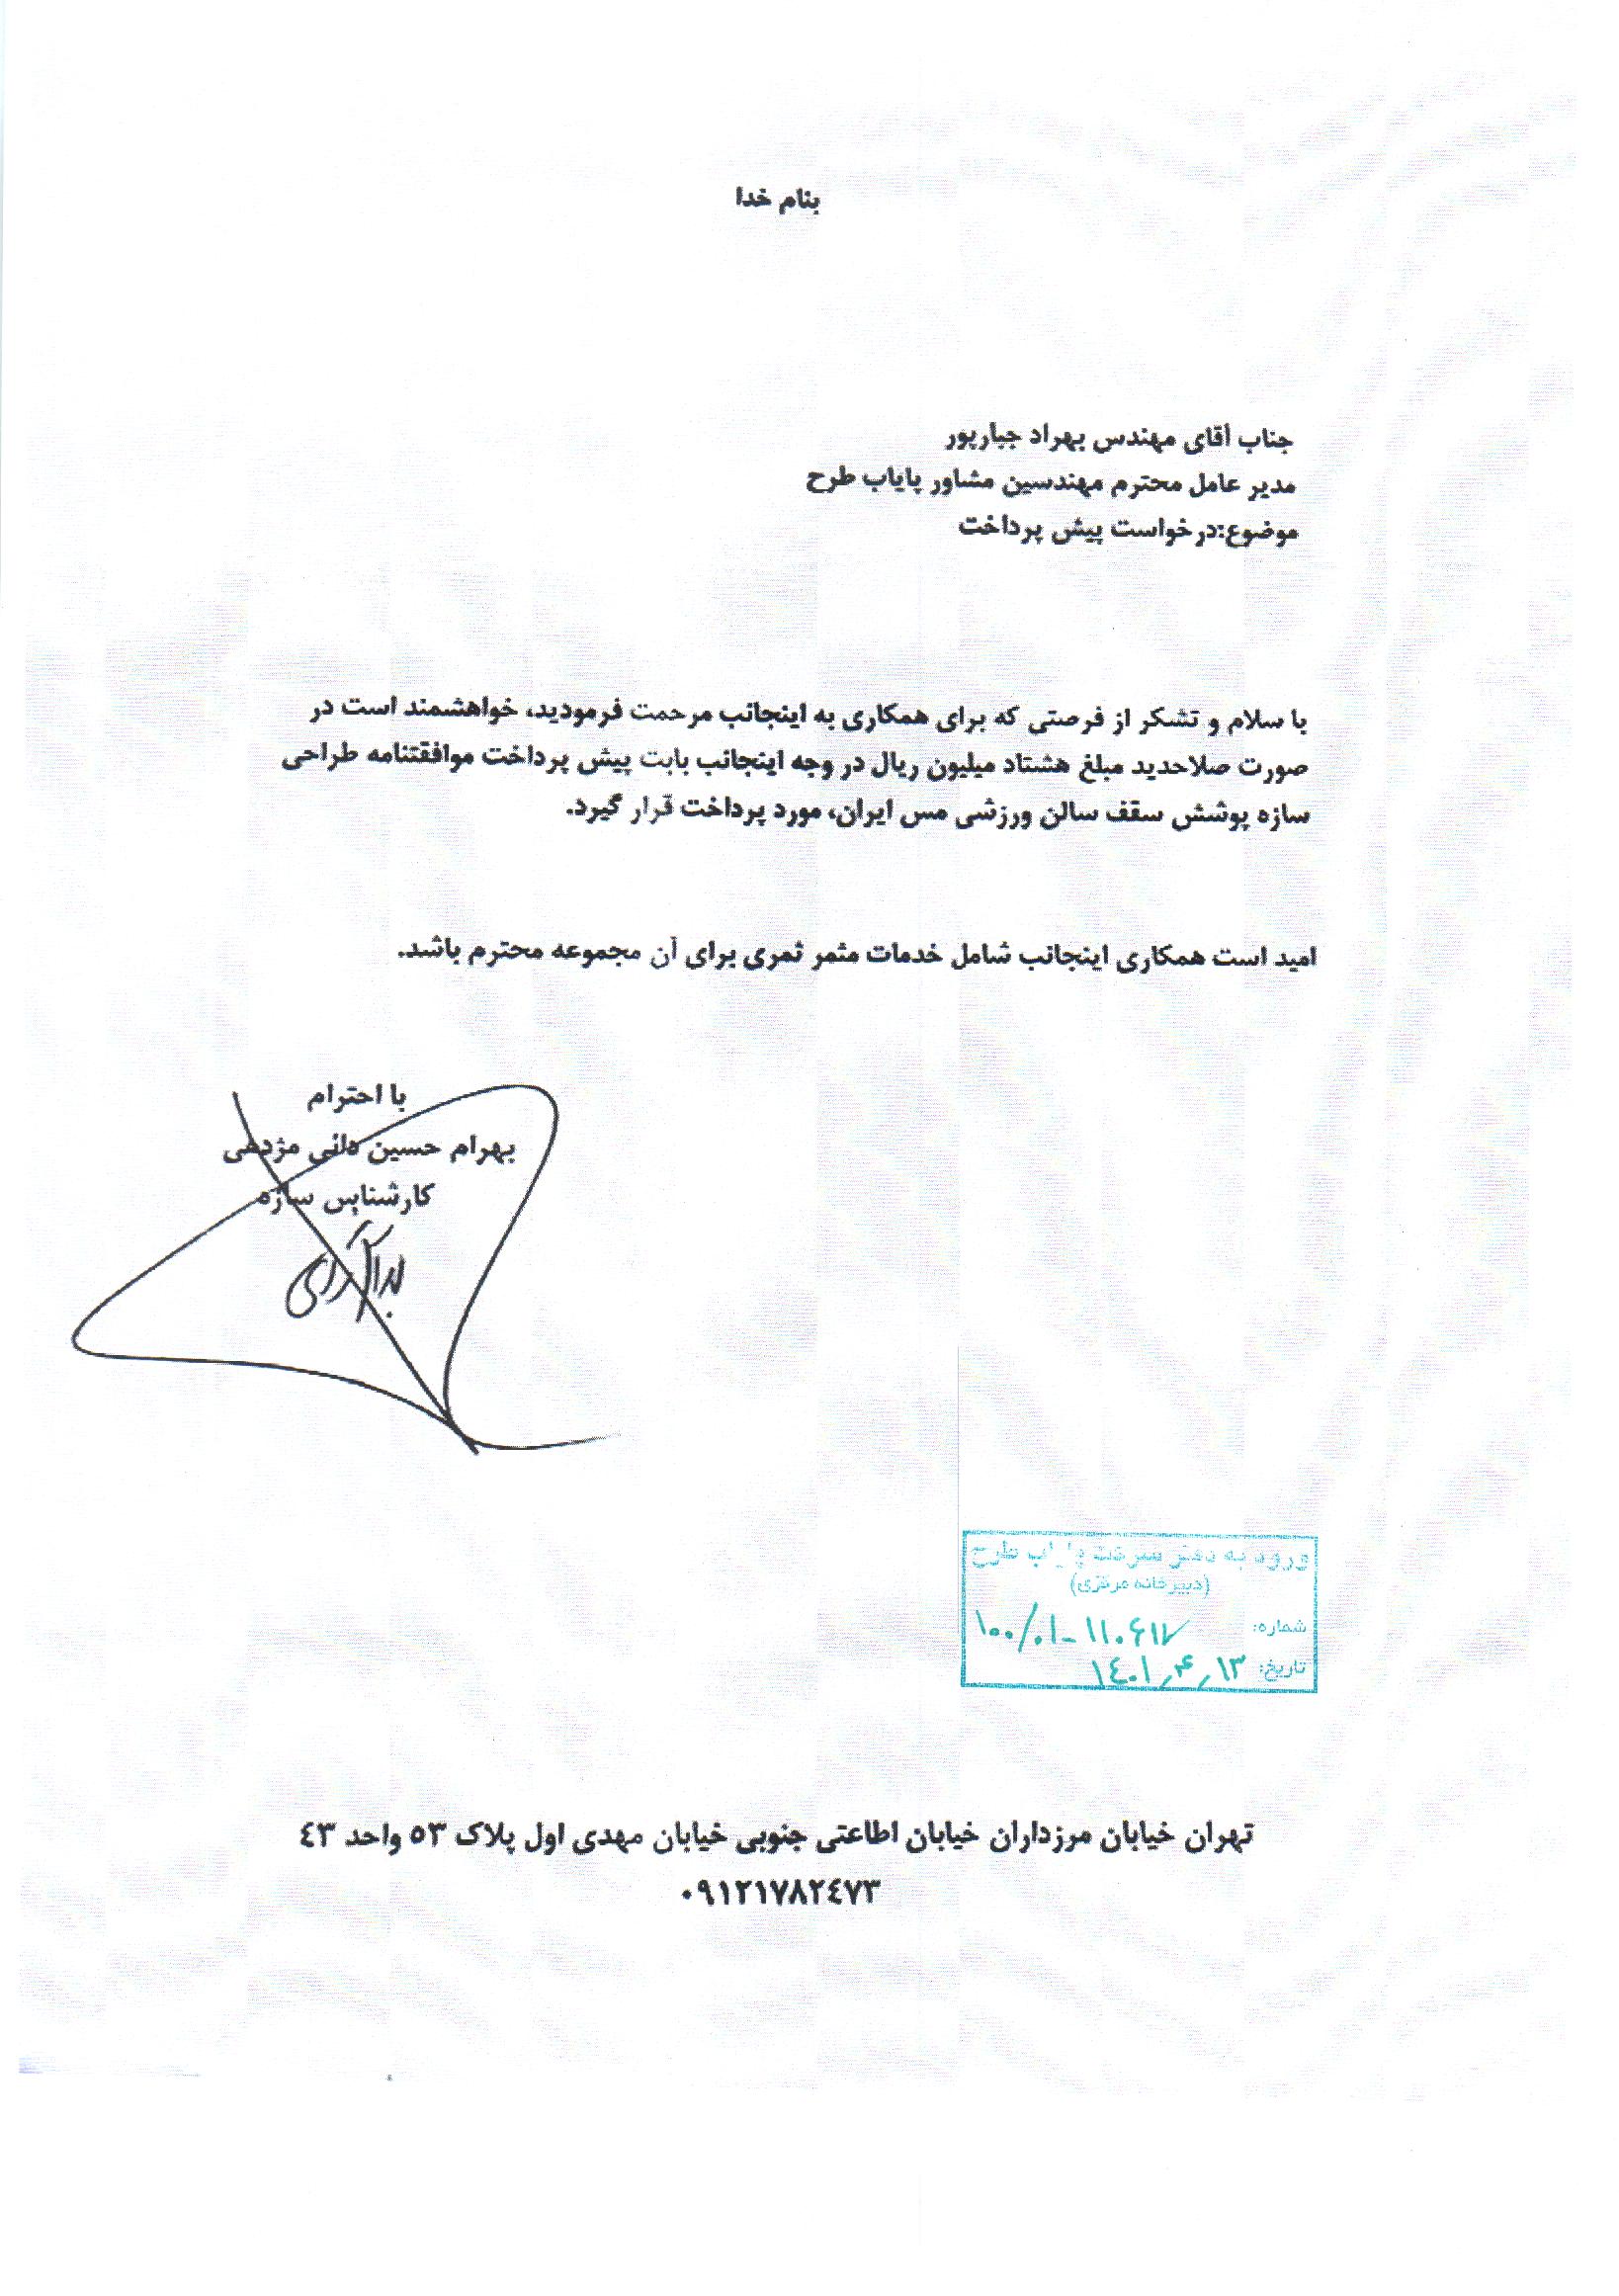 بنام خدا
جناب آقای مهندس بهراد جبارپور
مدیر عامل محترم مهندسین مشاور پایاب طرح
موضوع:درخواست پیش پرداخت
با سلام و تشکر از فرصتی که برای همکاری به اینجانب مرحمت فرمودید، خواهشمند است در
صورت صلاحدید مبلغ هشتاد میلیون ریال در وجه اینجانب بابت پیش پرداخت موافقتنامه طراحی
سازه پوشش سقف سالن ورزشی مس ایران، مورد پرداخت قرار گیرد.
امید است همکاری اینجانب شامل خدمات مثمر ثمری برای آن مجموعه محترم باشد.
با احترام
بهرام حسین مژدهی
کارشناس سازه
ورود به دفتر شرکت پایاب طرح
(دبیرخانه مرکزی)
شماره: ۱۰۰/۰۱-۱۱۰۶۱۷
تاریخ: ۱۴۰۱٫۴٫۱۳
تهران خیابان مرزداران خیابان اطاعتی جنوبی خیابان مهدی اول پلاک ۵۳ واحد ۴۳
۰۹۱۲۱۷۸۲۴۷۳